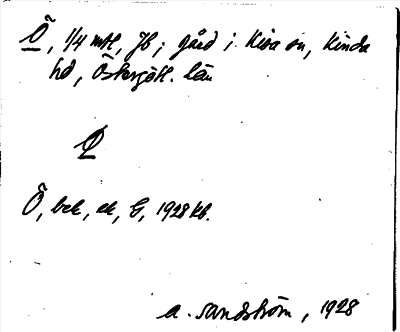 Ö, 1/4 mtl, Jb; gård i Kisa sn, Kinda
hd, Östergötl. län
Ö
Ö, bek, ek, G, 1928 kb.
A. Sandström, 1928